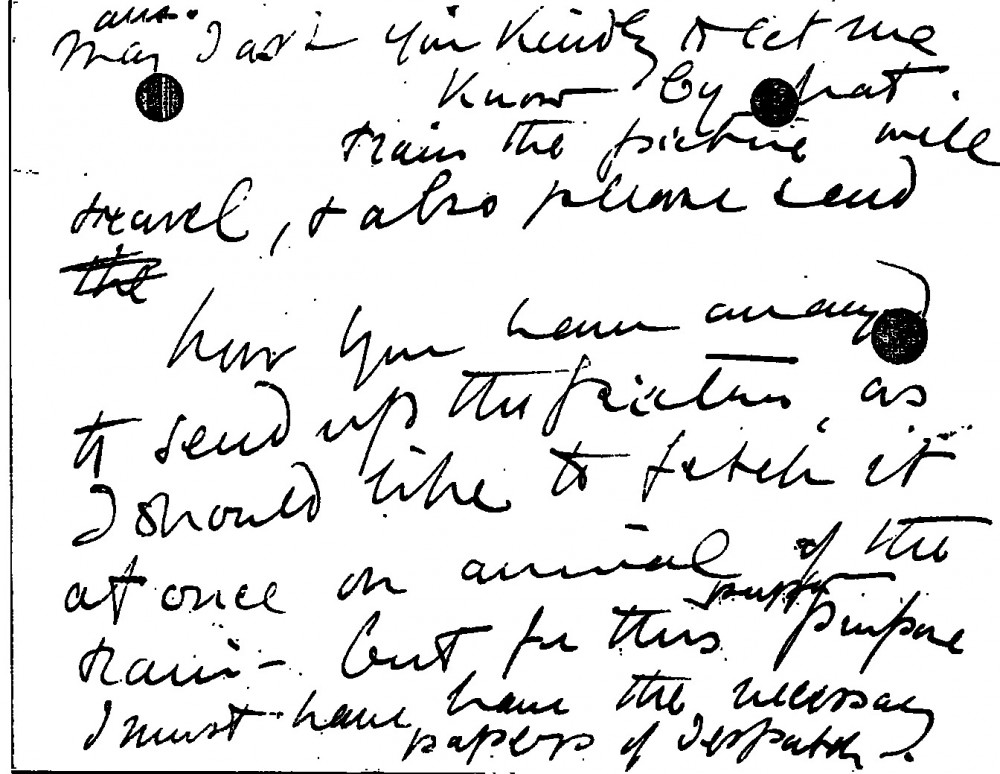 ans.
May I ask you kindly to let me
know by what
train the picture will
travel, & also please send
the
how you have arranged
to send up the picture, as
I should like to fetch it
at once on arrival of the
train – but for this purpose
I must have have the necessary
papers of despatch –.